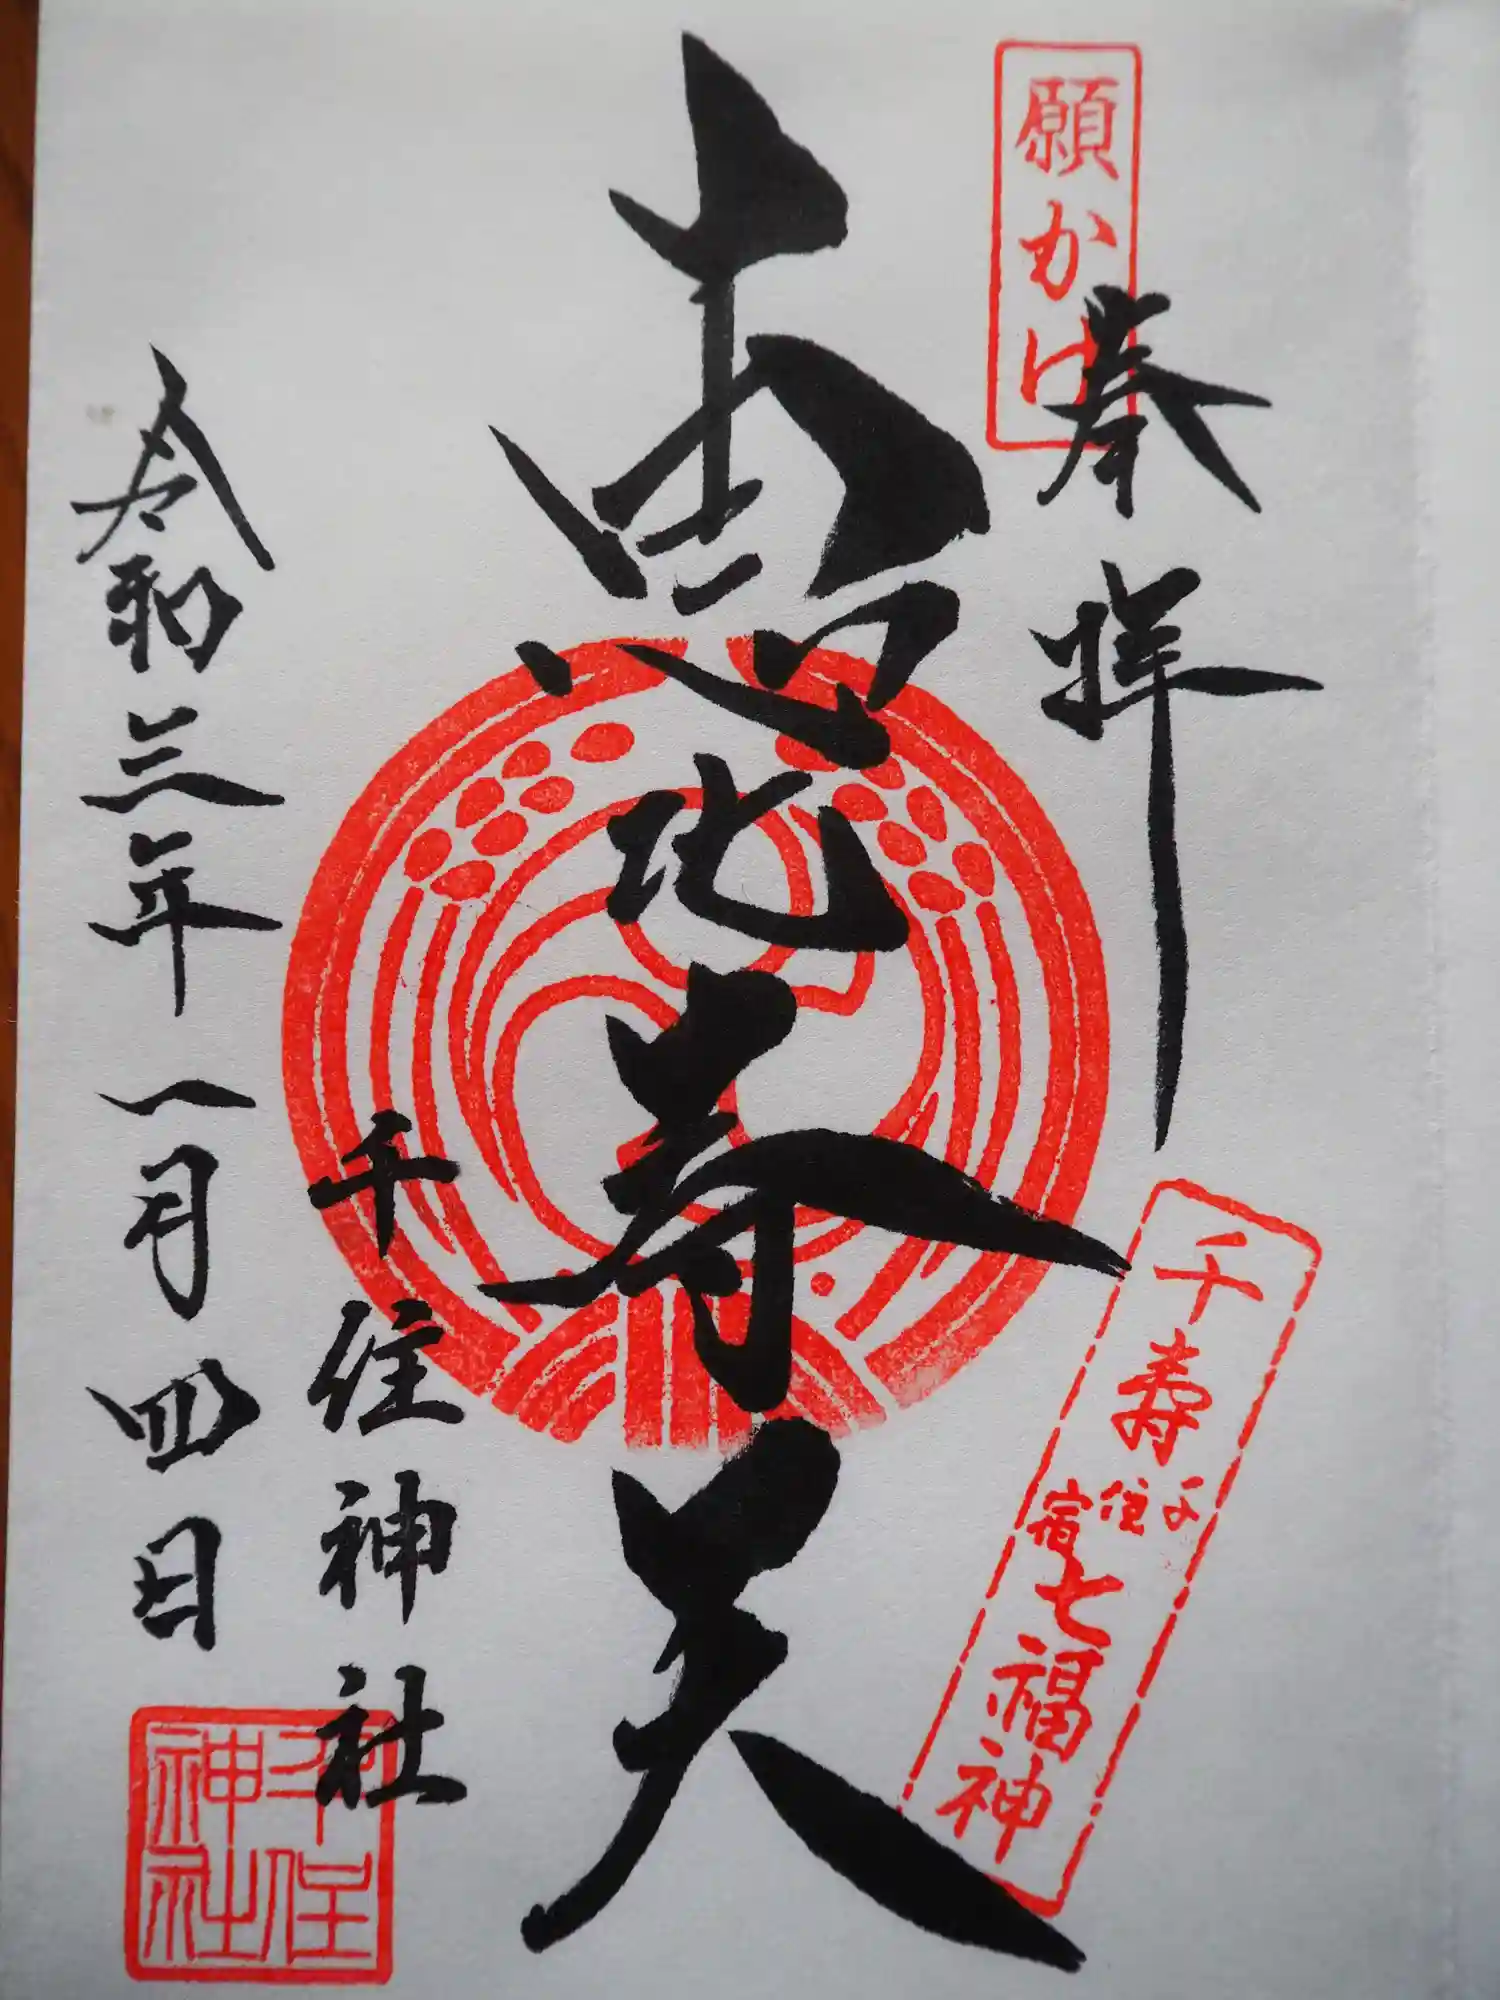 願かけ
奉拝
恵比寿天
千寿
千住宿
七福神
千住神社
令和三年一月四日
千住
神社